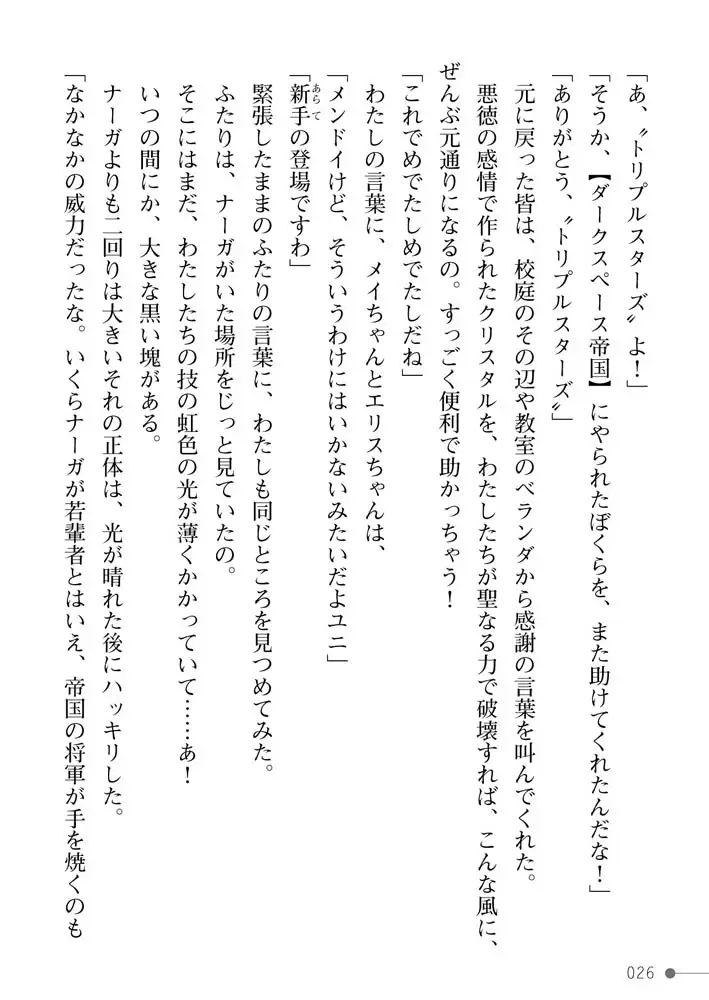 「あ、〝トリプルスターズ〟よ！」
「そうか、【ダークスペース帝国】にやられたぼくらを、また助けてくれたんだな！」
「ありがとう、〝トリプルスターズ〟」
元に戻った皆は、校庭のその辺や教室のベランダから感謝の言葉を叫んでくれた。
悪徳の感情で作られたクリスタルを、わたしたちが聖なる力で破壊すれば、こんな風に、
ぜんぶ元通りになるの。すっごく便利で助かっちゃう！
「これでめでたしめでたしだね」
わたしの言葉に、メイちゃんとエリスちゃんは、
「メンドイけど、そういうわけにはいかないみたいだよユニ」
「新手の登場ですわ」
あらて
緊張したままのふたりの言葉に、わたしも同じところを見つめてみた。
ふたりは、ナーガがいた場所をじっと見ていたの。
そこにはまだ、わたしたちの技の虹色の光が薄くかかっていて……あ！
いつの間にか、大きな黒い塊がある。
ナーガよりも二回りは大きいそれの正体は、光が晴れた後にハッキリした。
「なかなかの威力だったな。いくらナーガが若輩者とはいえ、帝国の将軍が手を焼くのも
026